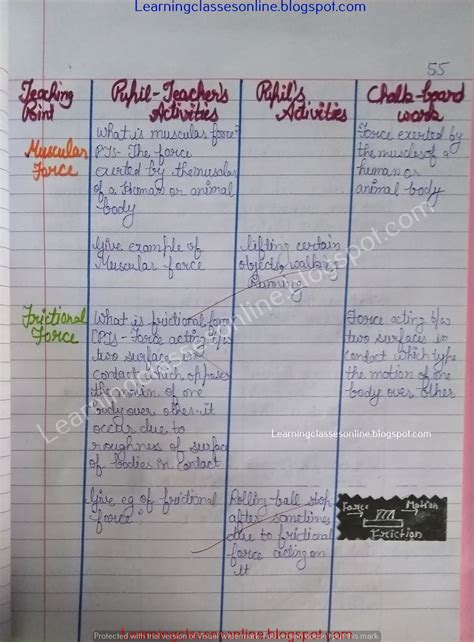 Learningclassesonline.blogspot.com
55
Teaching Point
Pupil-Teacher's Activities
Pupil's Activities
Chalk-board work
Muscular Force
What is muscular force?
PTS- The force
exerted by the muscles
of a Human or animal
body
Force exerted by
the muscles of a
human or
animal body
Give example of
Muscular force
lifting certain
objects, walking,
Running
Learningclassesonline.blogspot.com
Frictional Force
What is frictional force
(PTS- Force acting b/w
two surface in
contact which opposes
the motion of one
body over other. it
occur due to
roughness of surface
of bodies in contact
Force acting b/w
two surfaces in
contact which
the motion of one
body over other
Learningclassesonline.blogspot.com
Give eg of frictional
force"
Rolling ball stop
after sometimes
due to frictional
force acting on
it
Force Motion
Friction
Protected with trial version of Visual Watermark
this mark.
Learningclassesonline.blogspot.com